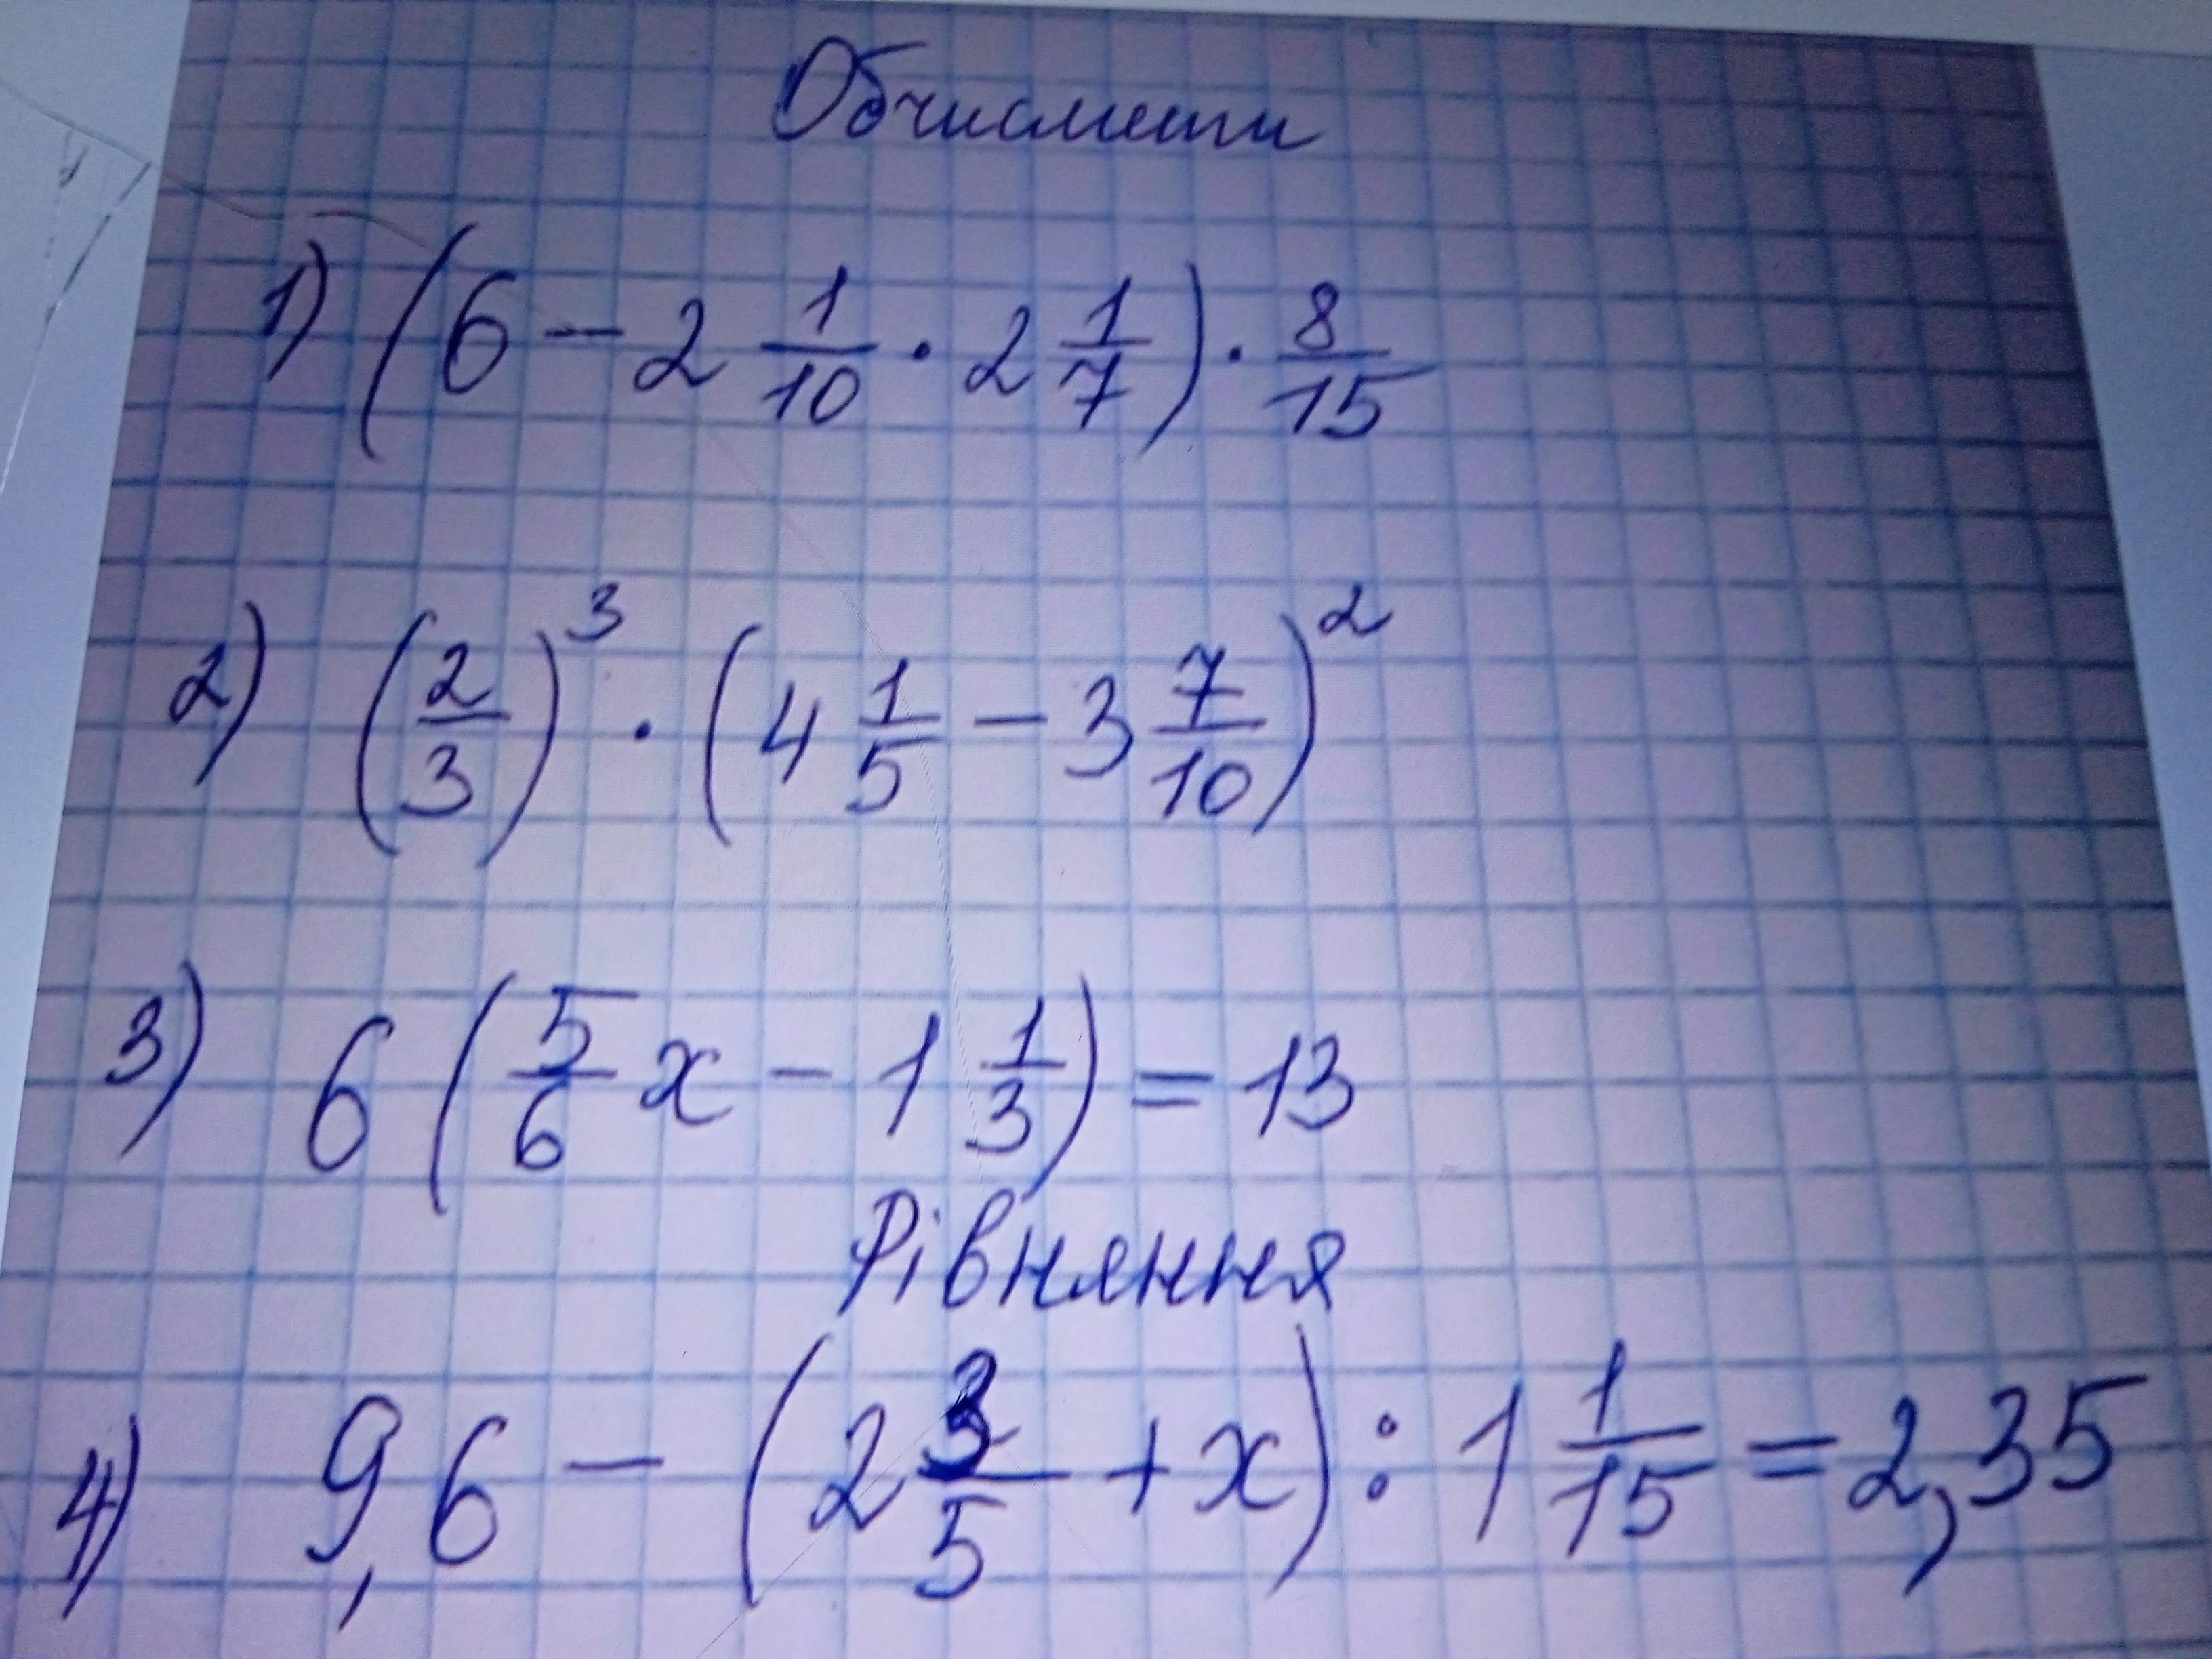 Обчислити
1) (6 - 2 1/10 · 2 1/7) · 8/15
2) (2/3)³ · (4 1/5 - 3 7/10)²
3) 6 (5/6 x - 1 1/3) = 13
Рівняння
4) 9,6 - (2 3/5 + x) : 1 1/15 = 2,35